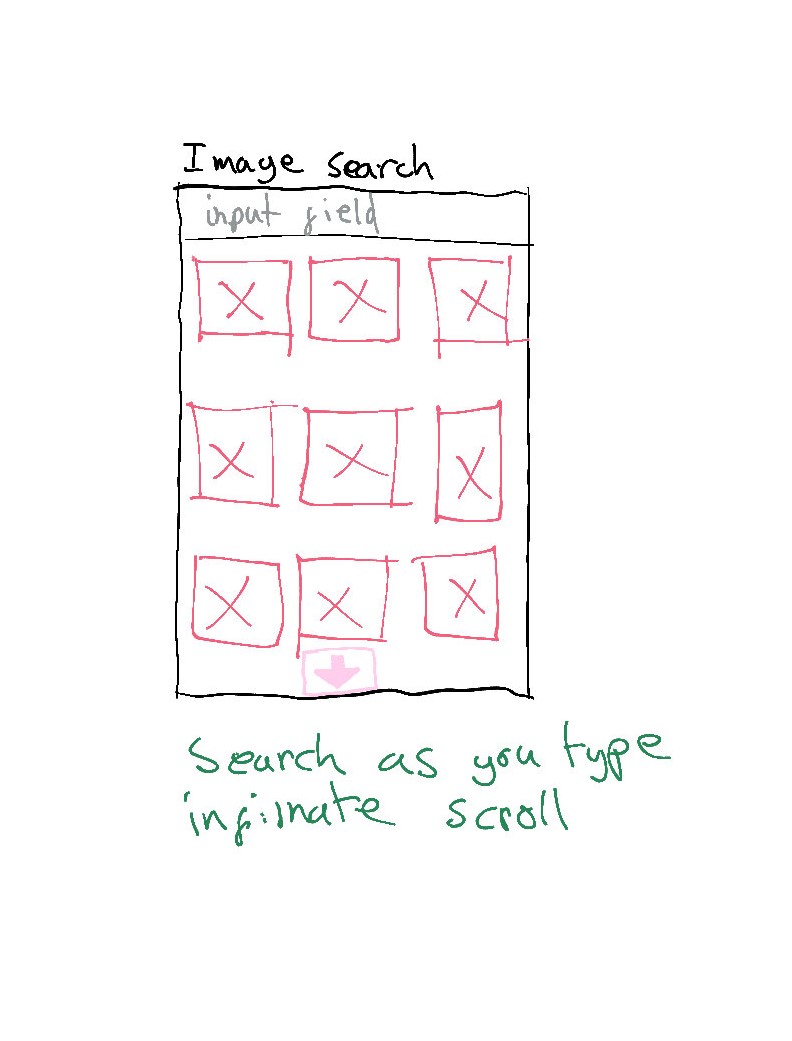 Image search
input field
Search as you type
infinate scroll